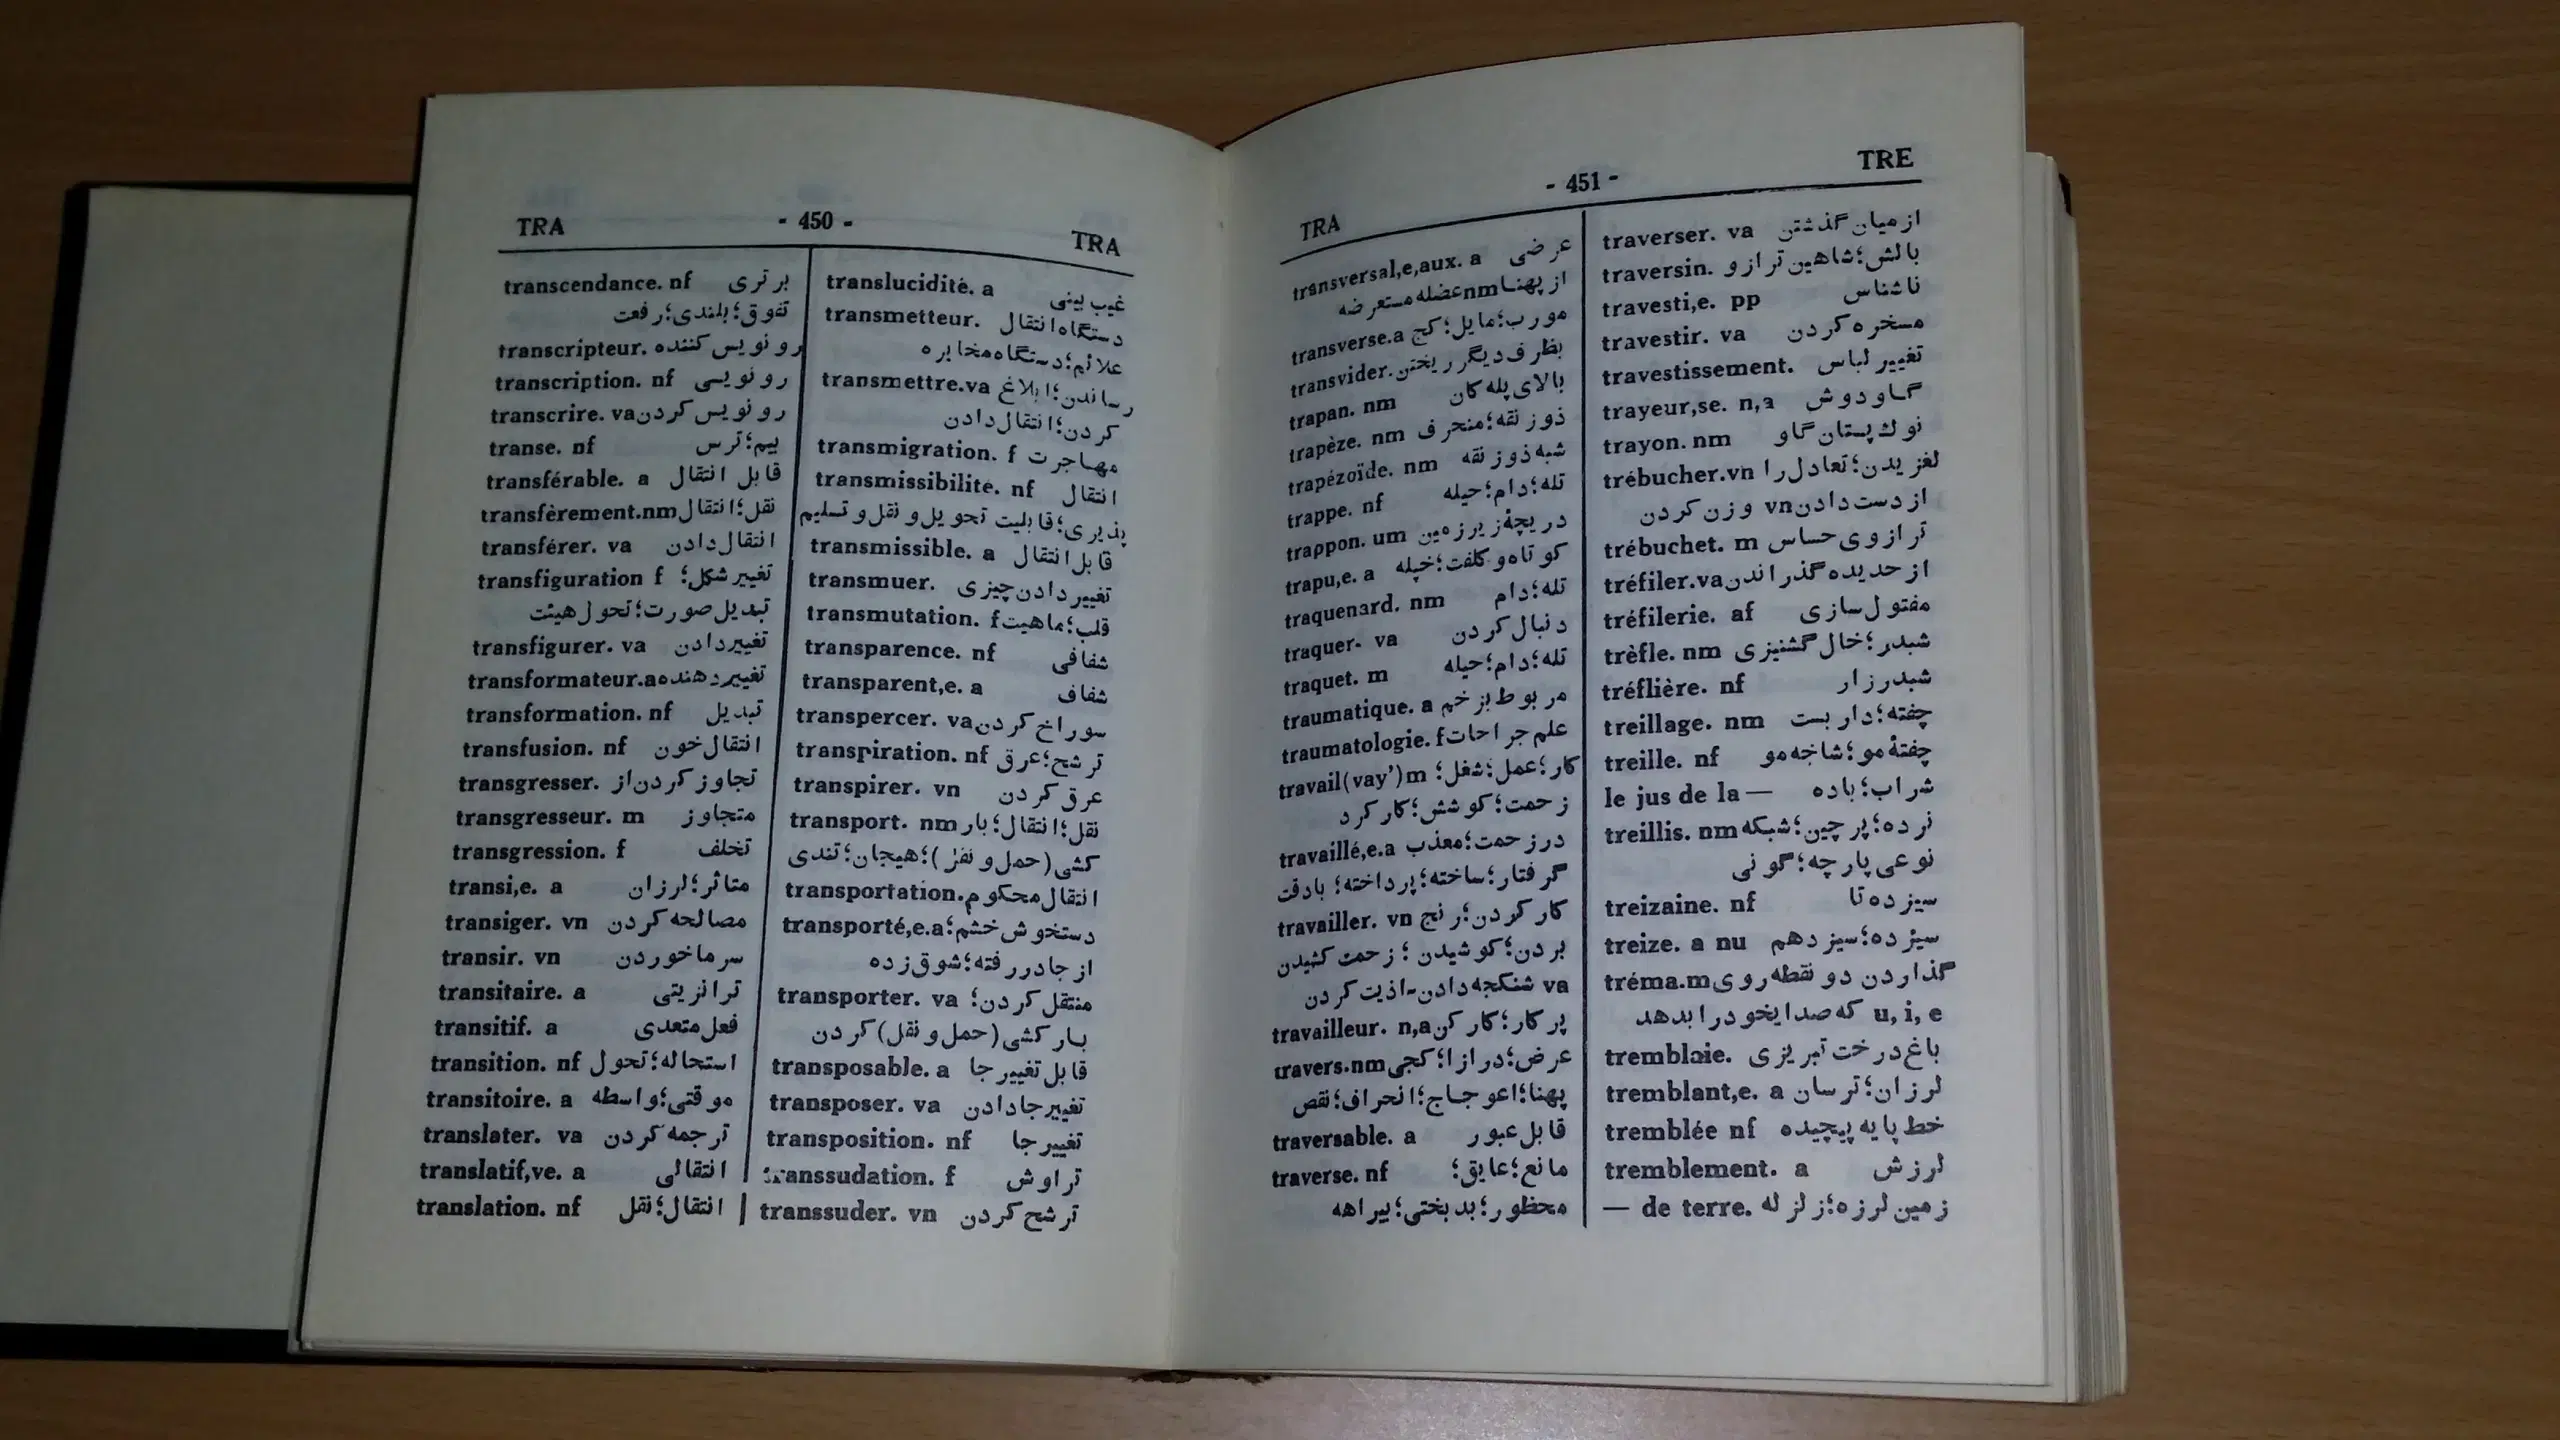 TRA - 450 - TRA
transcendance. nf برتری
تفوق؛بلندی؛رفعت
transcripteur. رونویس کننده
transcription. nf رونویسی
transcrire. va رونویس کردن
transe. nf بیم؛ترس
transférable. a قابل انتقال
transfèrement.nm نقل؛انتقال
transférer. va انتقال دادن
transfiguration f تغییر شکل؛
تبدیل صورت؛تحول هیئت
transfigurer. va تغییردادن
transformateur.a تغییردهنده
transformation. nf تبدیل
transfusion. nf انتقال خون
transgresser. تجاوز کردن از
transgresseur. m متجاوز
transgression. f تخلف
transi,e. a متاثر؛لرزان
transiger. vn مصالحه کردن
transir. vn سرماخوردن
transitaire. a ترانزیتی
transitif. a فعل متعدی
transition. nf استحاله؛تحول
transitoire. a موقتی؛واسطه
translater. va ترجمه کردن
translatif,ve. a انتقالی
translation. nf انتقال؛نقل
translucidité. a غیب بینی
transmetteur. دستگاه انتقال
علائم؛دستگاه مخابره
transmettre.va رساندن؛ابلاغ
کردن؛انتقال دادن
transmigration. f مهاجرت
transmissibilité. nf انتقال
پذیری؛قابلیت تحویل و نقل و تسلیم
transmissible. a قابل انتقال
transmuer. تغییر دادن چیزی
transmutation. f قلب؛ماهیت
transparence. nf شفافی
transparent,e. a شفاف
transpercer. va سوراخ کردن
transpiration. nf ترشح؛عرق
transpirer. vn عرق کردن
transport. nm نقل؛انتقال؛بار
کشی(حمل و نقل)؛هیجان؛تندی
transportation. انتقال محکوم
transporté,e.a دستخوش خشم؛
از جا دررفته؛شوق زده
transporter. va منتقل کردن؛
بارکشی(حمل و نقل)کردن
transposable. a قابل تغییر جا
transposer. va تغییر جا دادن
transposition. nf تغییر جا
transsudation. f تراوش
transsuder. vn ترشح کردن
TRA - 451 - TRE
transversal,e,aux. a عرضی
از پهنا nm عضله مستعرضه
transverse.a مورب؛مایل؛کج
transvider. بظرف دیگر ریختن
trapan. nm بالای پله کان
trapèze. nm ذوزنقه؛منحرف
trapézoïde. nm شبه ذوزنقه
trappe. nf تله؛دام؛حیله
trappon. um دریچهٔ زیرزمین
trapu,e. a کوتاه و کلفت؛خپله
traquenard. nm تله؛دام
traquer. va دنبال کردن
traquet. m تله؛دام؛حیله
traumatique. a مربوط بزخم
traumatologie. f علم جراحات
travail(vay’)m کار؛عمل؛شغل؛
زحمت؛کوشش؛کارکرد
travaillé,e.a درزحمت؛معذب
گرفتار؛ساخته؛پرداخته؛ بادقت
travailler. vn کارکردن؛رنج
بردن؛کوشیدن ؛ زحمت کشیدن
va شنکجه دادن-اذیت کردن
travailleur. n,a پرکار؛کارکن
travers.nm عرض؛درازا؛کجی
پهنا؛اعوجاج؛انحراف؛نقص
traversable. a قابل عبور
traverse. nf مانع؛عایق؛
محظور؛بدبختی؛بیراهه
traverser. va ازمیان گذشتن
traversin. بالش؛شاهین ترازو
travesti,e. pp ناشناس
travestir. va مسخره کردن
travestissement. تغییر لباس
trayeur,se. n,a گاودوش
trayon. nm نوک پستان گاو
trébucher.vn لغزیدن؛تعادل را
از دست دادن vn وزن کردن
trébuchet. m ترازوی حساس
tréfiler.va از حدیده گذراندن
tréfilerie. af مفتول سازی
trèfle. nm شبدر؛خال گشنیزی
tréflière. nf شبدرزار
treillage. nm چفته؛داربست
treille. nf چفتهٔ مو؛شاجه مو
le jus de la — شراب؛باده
treillis. nm نرده؛پرچین؛شبکه
نوعی پارچه؛گونی
treizaine. nf سیزده تا
treize. a nu سیزده؛سیزدهم
tréma.m گذاردن دو نقطه روی
u, i, e که صدایخودرا بدهد
tremblaie. باغ درخت تبریزی
tremblant,e. a لرزان؛ترسان
tremblée nf خط پایه پیچیده
tremblement. a لرزش
— de terre. زمین لرزه؛زلزله